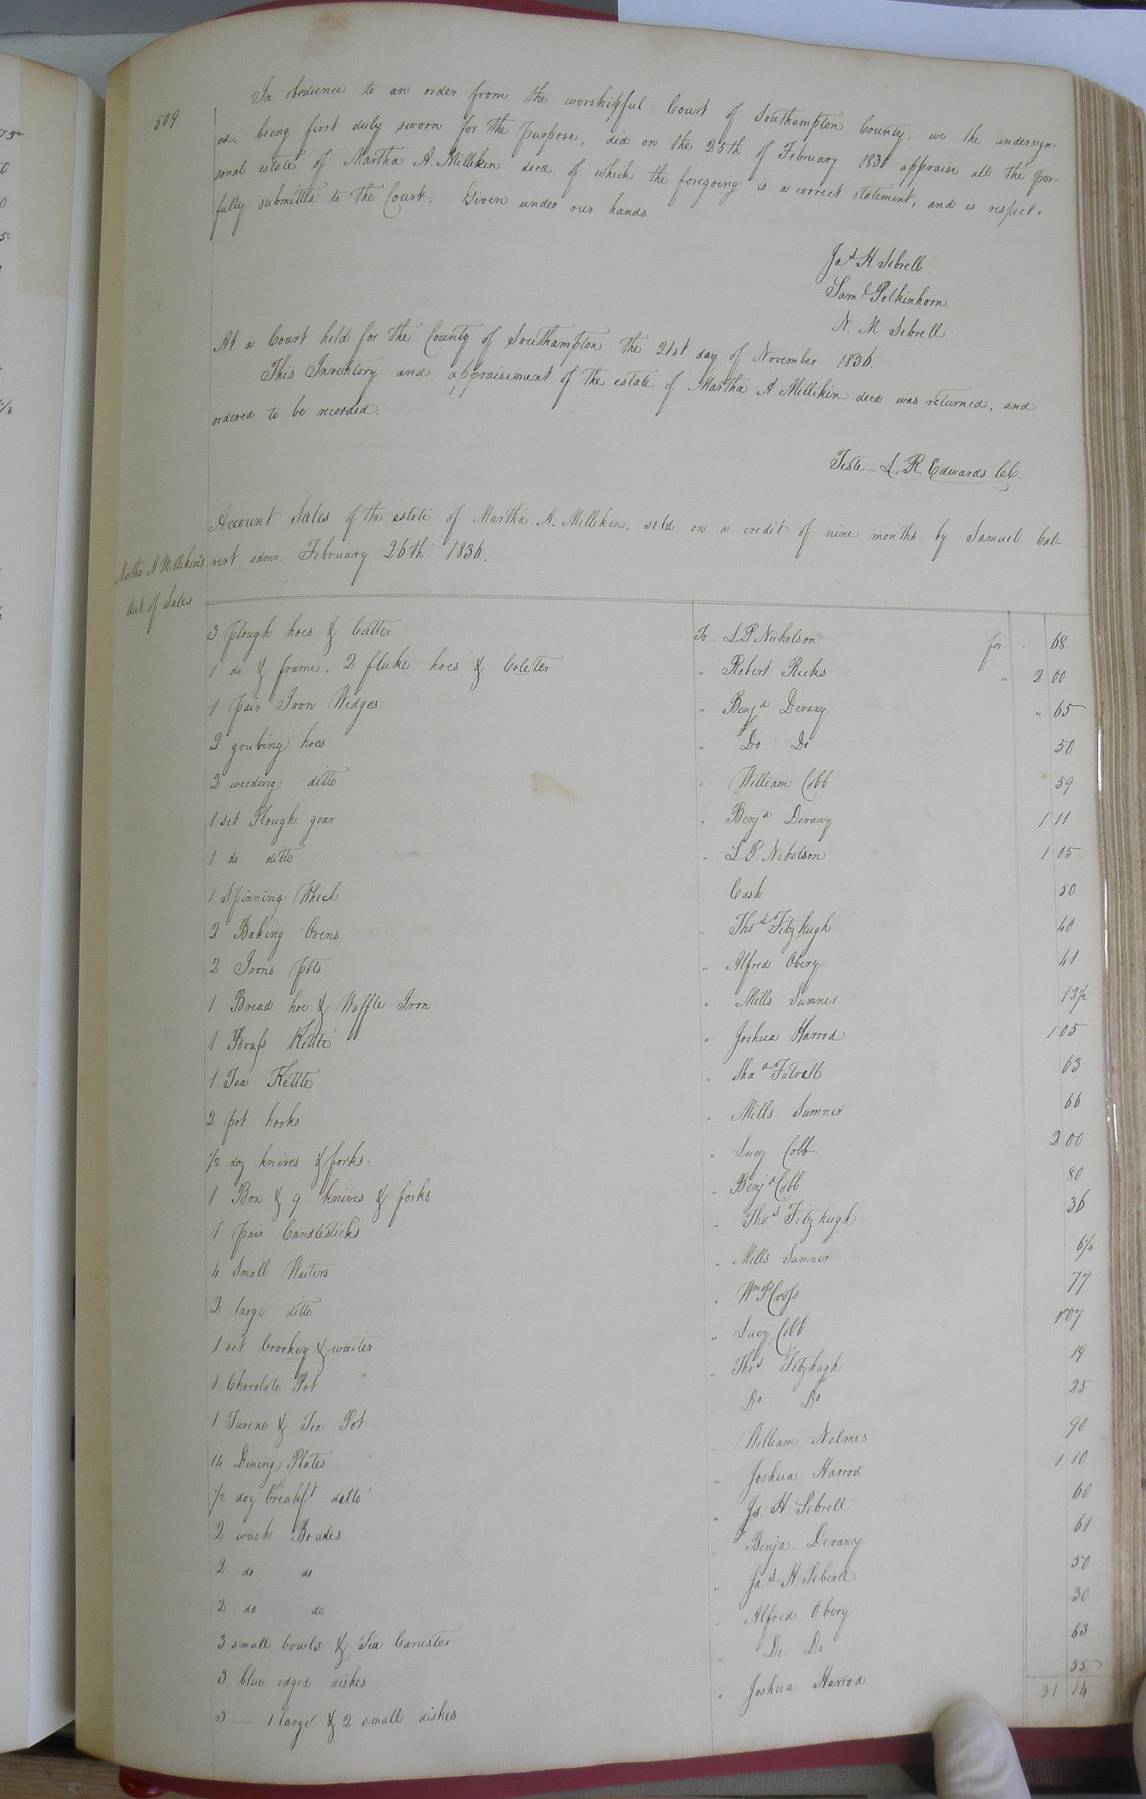 509
In obedience to an order from the worshipful Court of Southampton County, we the undersign-
ed, being first duly sworn for the purpose, did on the 25th of February 1836 appraise all the per-
sonal estate of Martha A. Millikin decd. of which the foregoing is a correct statement, and is respect-
fully submitted to the Court. Given under our hands.
Jas. H. Sebrell
Saml Polkinhorn.
N. M Sebrell
At a Court held for the County of Southampton the 21st day of November 1836.
This Inventory and appraisement of the estate of Martha A Millikin decd was returned, and
ordered to be recorded.
Teste— L. R. Edwards C.C.
Martha A Millikin's
Act. of Sales
Account Sales of the estate of Martha A. Millikin, sold on a credit of nine months by Samuel Cal-
vert admr. February 26th 1836.
3 Plough hoes & Cutter To L P Nicholson for 68
1 do & frame, 2 fluke hoes & Colter " Robert Ricks " 2 00
1 pair Iron Wedges " Benja Devany " 65
2 grubing hoes " Do. Do 50
2 weeding ditto " William Cobb 59
1 set Plough gear " Benja Devany 1 11
1 do ditto " L P Nicholson 1 05
1 Spinning Wheel Cash 50
2 Baking Ovens " Thos Fitzhugh 40
2 Irons pots " Alfred Obery 41
1 Bread hoe & Waffle Iron " Mills Sumner 12½
1 Brass Kettle " Joshua Harrod 1 05
1 Tea Kettle " Sha a Futrell 63
2 pot hooks " Mills Sumner 66
½ doz knives & forks. " Lucy Cobb 2 00
1 Box & 9 knives & forks " Benja Cobb 80
1 pair Candlesticks " Thos Fitzhugh 36
4 Small Waiters " Mills Sumner 6¼
2 large ditto " Wm H Cross 77
1 set Crockey & waiter " Lucy Cobb 1 07
1 Chocolate Pot " Thos Fitzhugh 19
1 Turene & Tea Pot " Do Do 25
14 Dining Plates " William Nelmes 90
½ doz breakft ditto " Joshua Harrod 1 10
2 wash Boules " Js. H. Sebrell 60
2 do do " Benja. Devany 61
2 do do " Jas H. Sebrell 50
3 small bowls & Tea Canister " Alfred Obery 30
3 blue edged dishes " Do. Do 63
3 — 1 large & 2 small dishes " Joshua Harrod 55
21 14